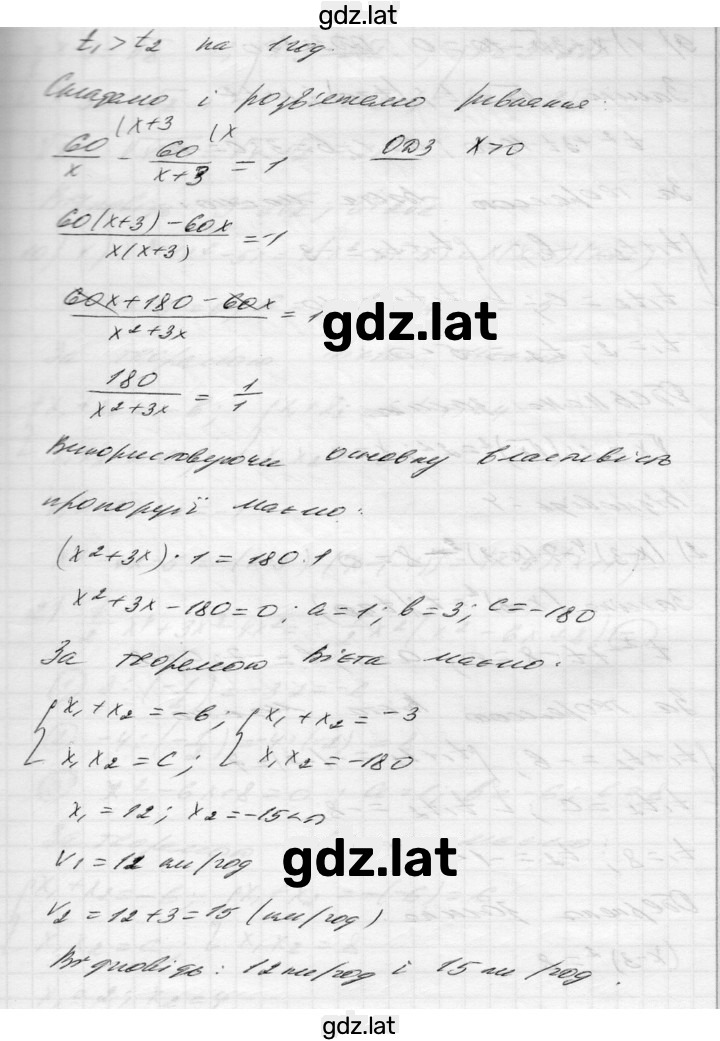 gdz.lat
t₁ > t₂ на 1 год.
Складемо і розв'яжемо рівняння:
60/x (x+3 - 60/(x+3) (x = 1 ОДЗ x>0
(60(x+3) - 60x)/(x(x+3)) = 1
(60x + 180 - 60x)/(x² + 3x) = 1
gdz.lat
180/(x² + 3x) = 1/1
Використовуючи основну властивість
пропорції маємо:
(x² + 3x) · 1 = 180 · 1
x² + 3x - 180 = 0; a = 1; b = 3; c = -180
За теоремою Вієта маємо:
{ x₁ + x₂ = -b; { x₁ + x₂ = -3
x₁x₂ = c; x₁x₂ = -180
x₁ = 12; x₂ = -15 <0
V₁ = 12 км/год
gdz.lat
V₂ = 12 + 3 = 15 (км/год)
Відповідь: 12 км/год і 15 км/год.
gdz.lat